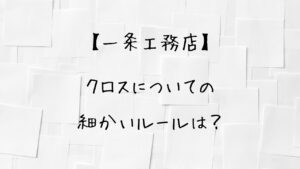 【一条工務店】
クロスについての
細かいルールは？